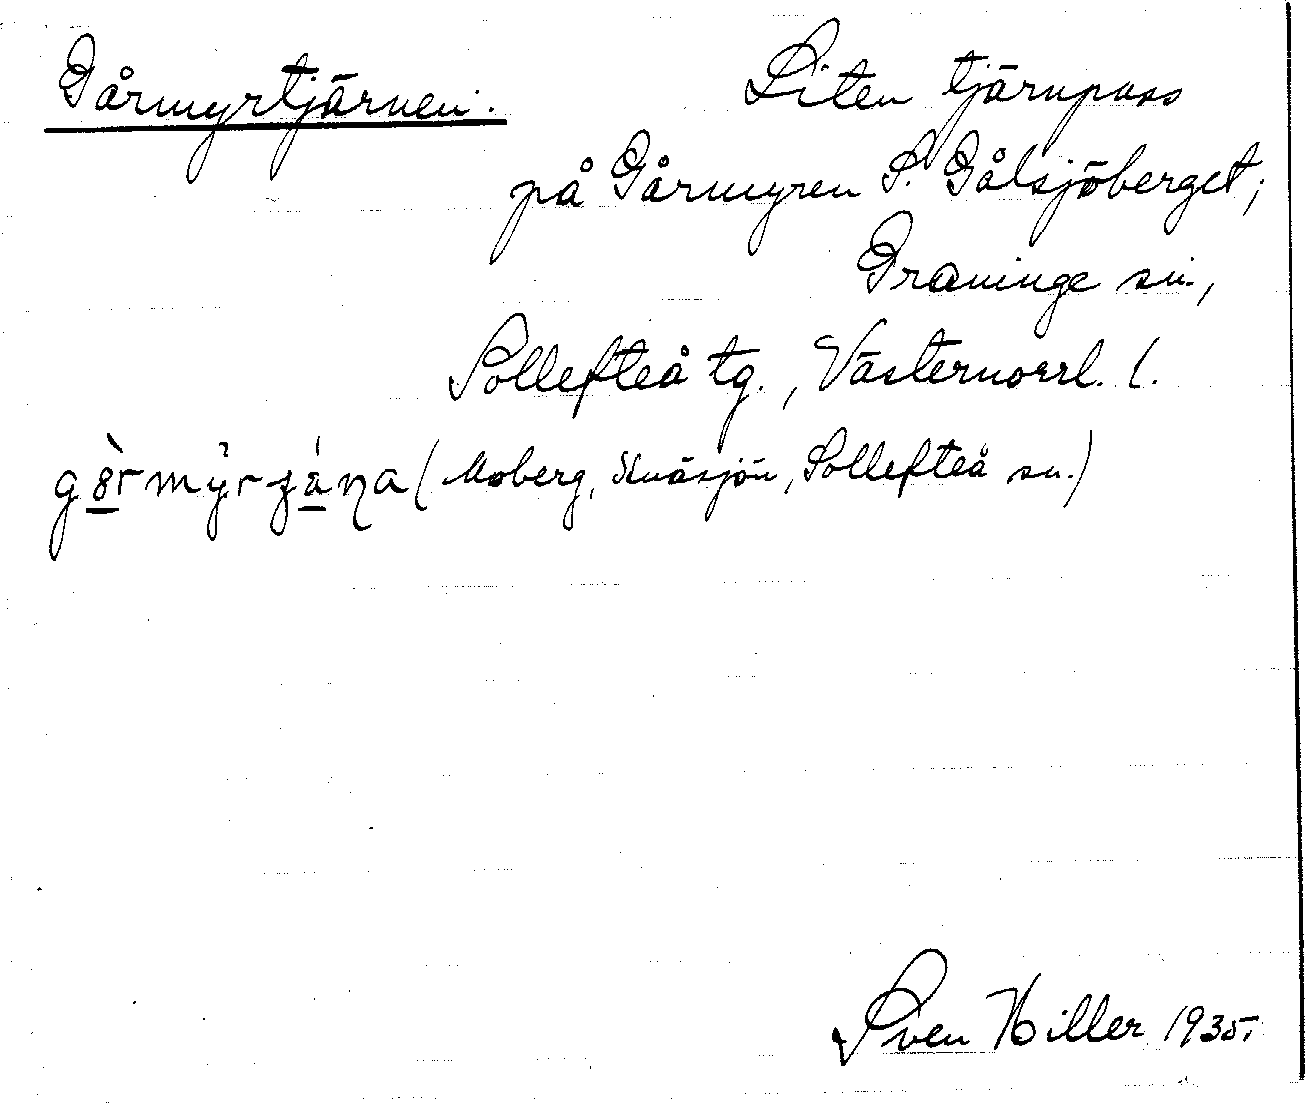 Gårmyrtjärnen.
Liten tjärnpuss
på Gårmyren S. Gålsjöberget;
Graninge sn.,
Sollefteå tg., Västernorrl. l.
(Moberg, Knäsjön, Sollefteå sn.)
Sven Hiller 1935.